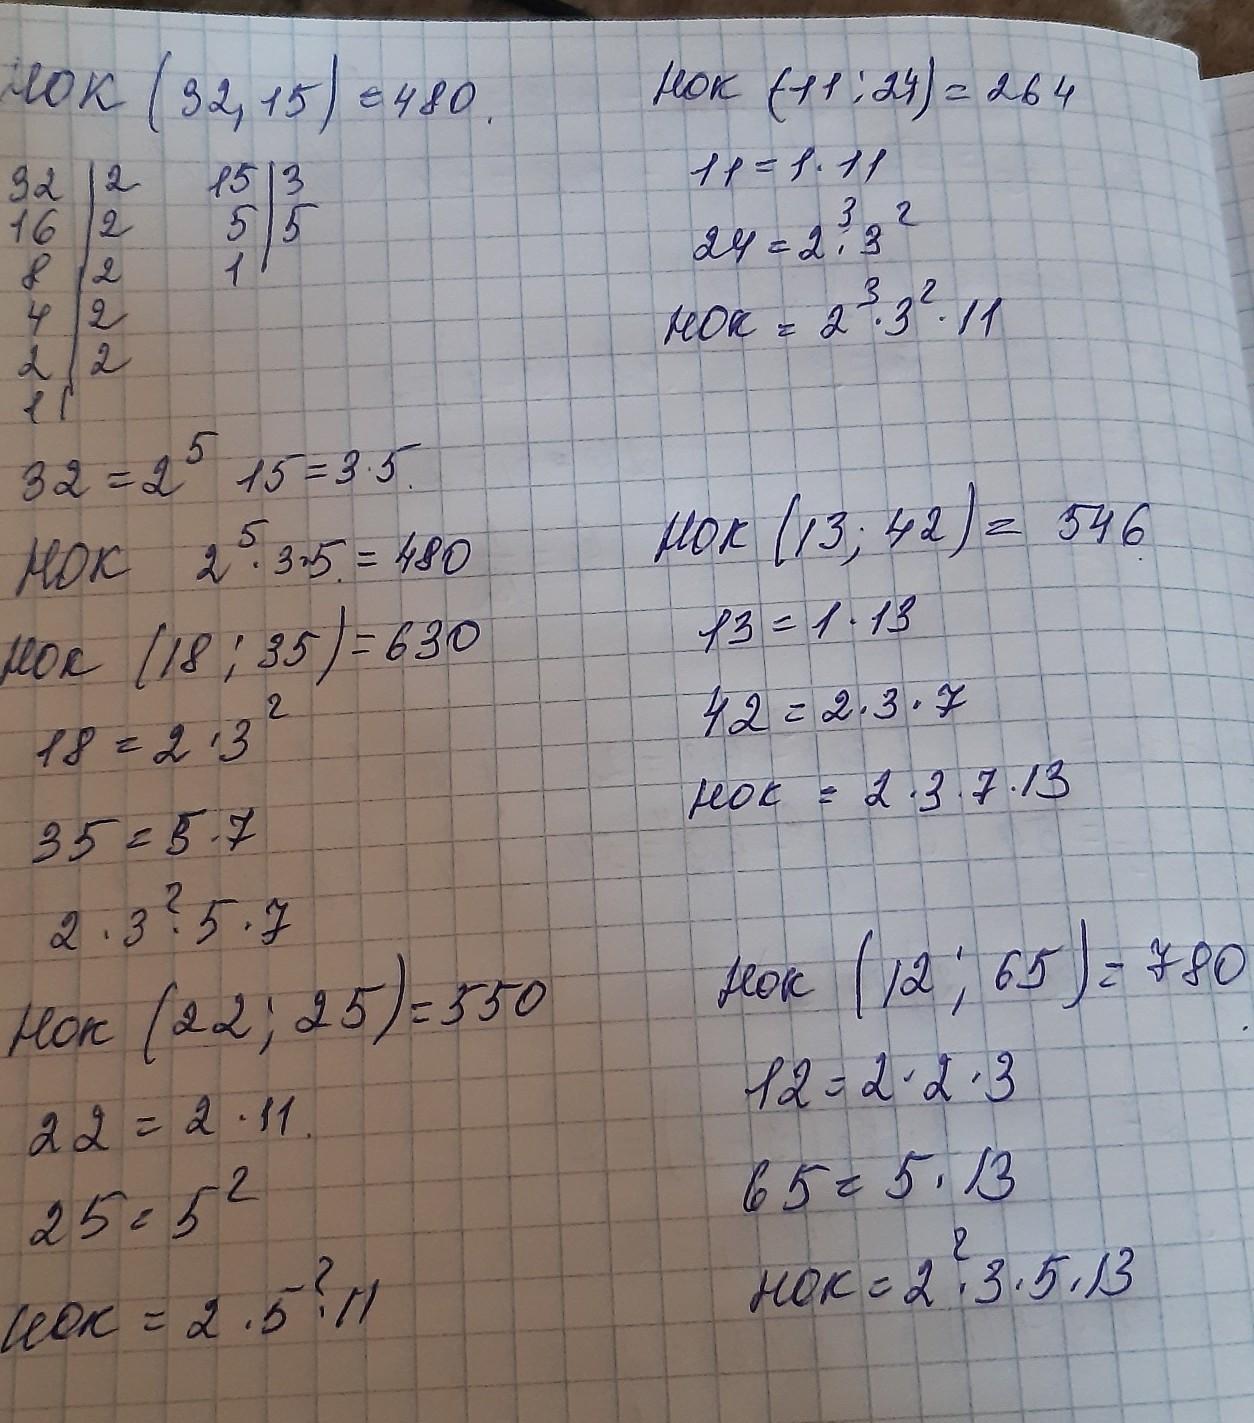 НОК (32, 15) = 480.
32 | 2   15 | 3
16 | 2   5 | 5
8 | 2   1 |
4 | 2
2 | 2
1 |
32 = 2⁵   15 = 3·5.
НОК   2⁵·3·5. = 480
НОК (18; 35) = 630
18 = 2·3²
35 = 5·7
2·3²·5·7
НОК (22; 25) = 550
22 = 2·11.
25 = 5²
НОК = 2·5²·11
НОК (11; 24) = 264
11 = 1·11
24 = 2³·3²
НОК = 2³·3²·11
НОК (13; 42) = 546.
13 = 1·13
42 = 2·3·7
НОК = 2·3·7·13
НОК (12; 65) = 780.
12 = 2·2·3
65 = 5·13
НОК = 2²·3·5·13